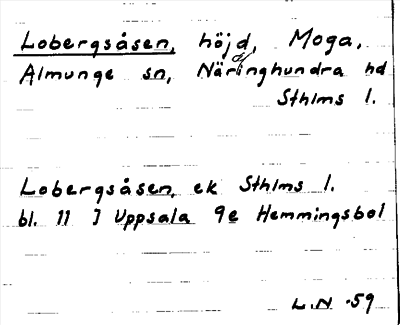 Lobergsåsen, höjd, Moga,
Almunge sn, Närdinghundra hd
Sthlms l.
Lobergsåsen, ek Sthlms l.
bl. 11 I Uppsala 9e Hemmingsbol
L.N -59